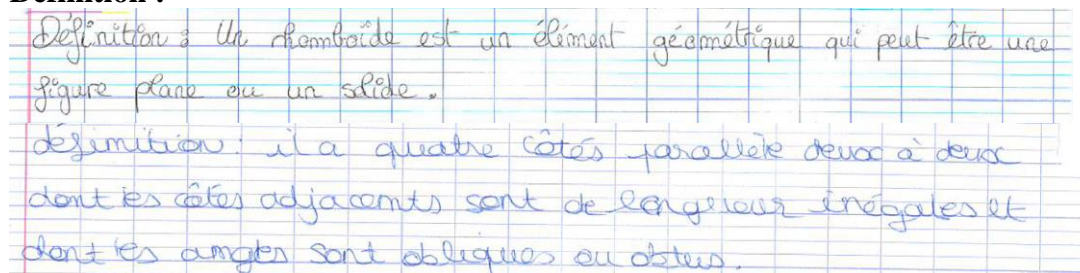 Définition :
Définition : Un rhomboïde est un élément géométrique qui peut être une
figure plane ou un solide.
définition : il a quatre côtés parallèle deux à deux
dont les côtés adjacents sont de longueur inégales et
dont les angles sont obliques ou obtus.